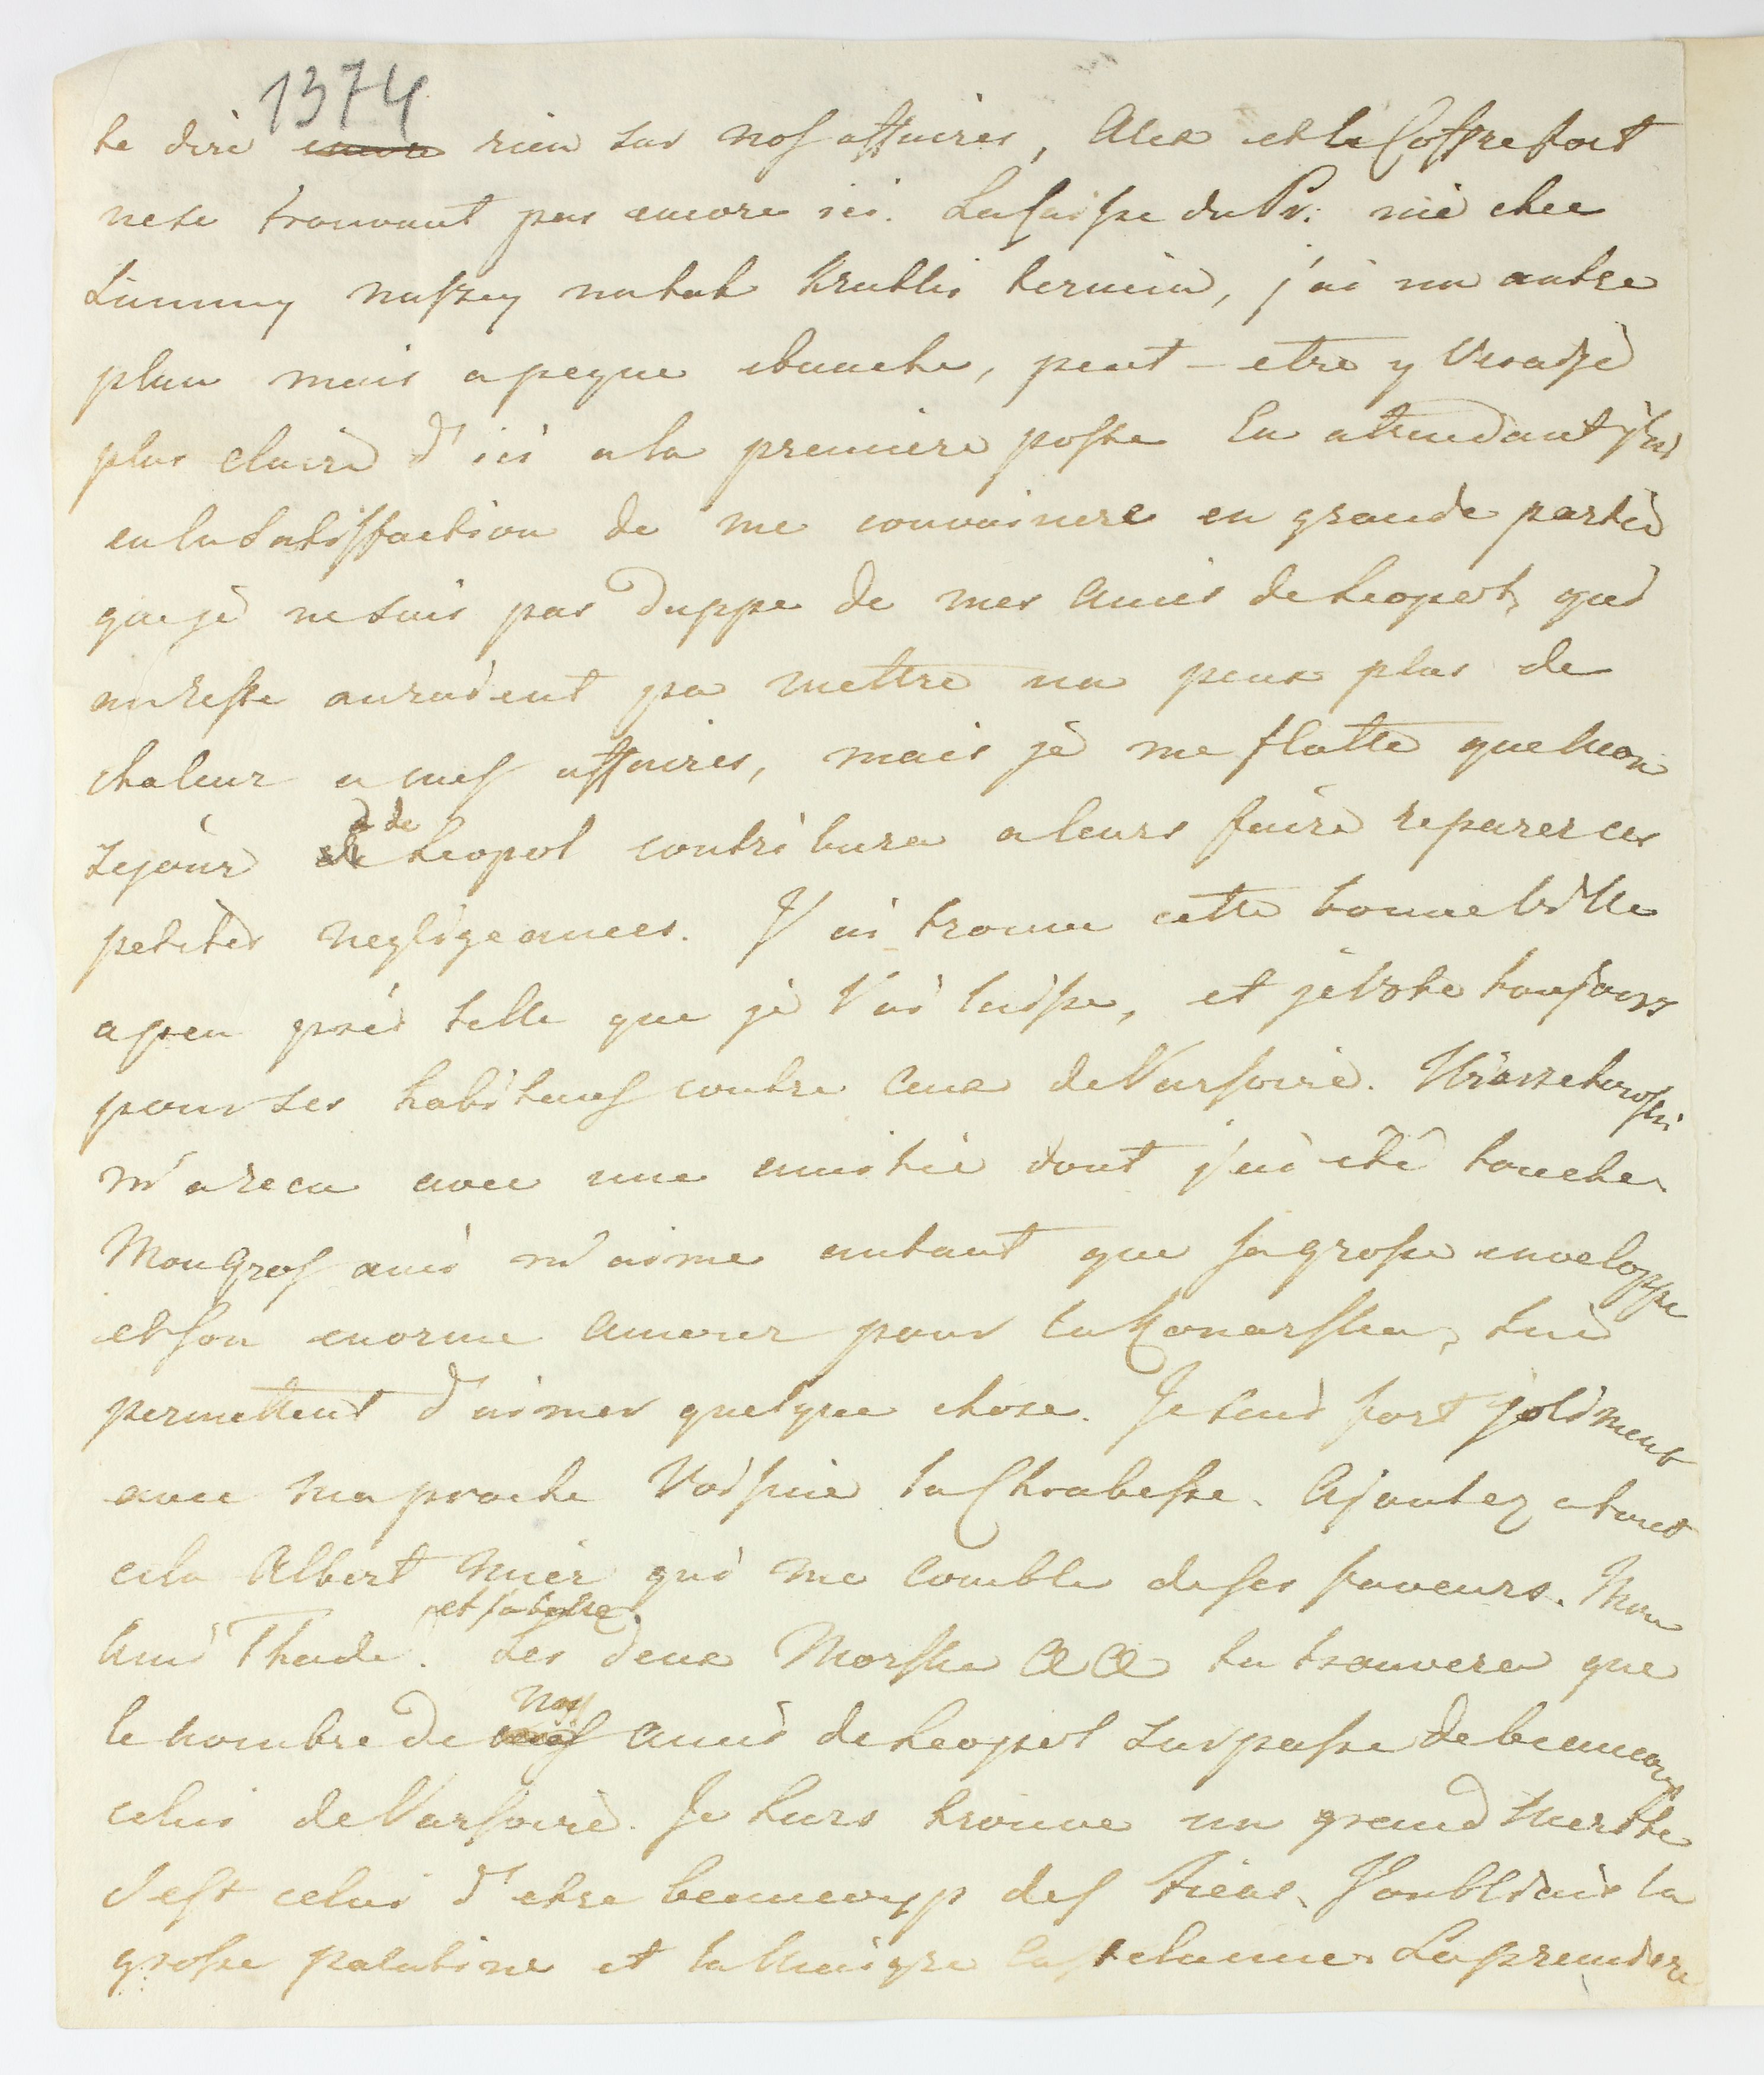 1374
te dire encore rien sur nos affaires, Alex et le Coffre fort
ne se trouvant pas encore ici. La Caisse du Pr: nie chce
Summy naszey na tak krutki termin, j'ai un autre
plan mais a peyne ebauche, peut-etre y Veraije
plus claire d'ici a la premiere poste En attendant j'ai
eu la Satisffaction de me convaincre en grande partie
que je ne suis pas duppe de mes amis de Leopol, qui
au reste auraient pu mettre un peux plus de
chaleur a mes affaires, mais je me flatte que Mon
sejour a de Leopol contribura a leurs faire reparer ces
petites negligeances. J'ai trouve cette bonne Ville
a peu près telle que je l'ai laisse, et je Vote toujours
pour ses habitans contre Ceux de Varsovie.
m'a recu avec une amitie dont j'ai été touche.
Mon Gros ami m'aime autant que sa grosse enveloppe
et son enorme amour pour la Konarska, lui
permettent d'aimer quelque chose. Je suis fort joliment
avec ma proche Voisine la Ajoutez a tout
cela Albert Mier qui me comble de ses faveurs. Mon
et sa
Ami Thade. Les deux Morska tu trouvera que
nos
le nombre de amis de Leopol surpasse de beaucoup
celui de Varsovie. Je leurs trouve un grand Merite
c'est celui d'etre beaucoup des tiens. J'oubliais la
grosse palatine et la Maigre Castelanne. La premiere